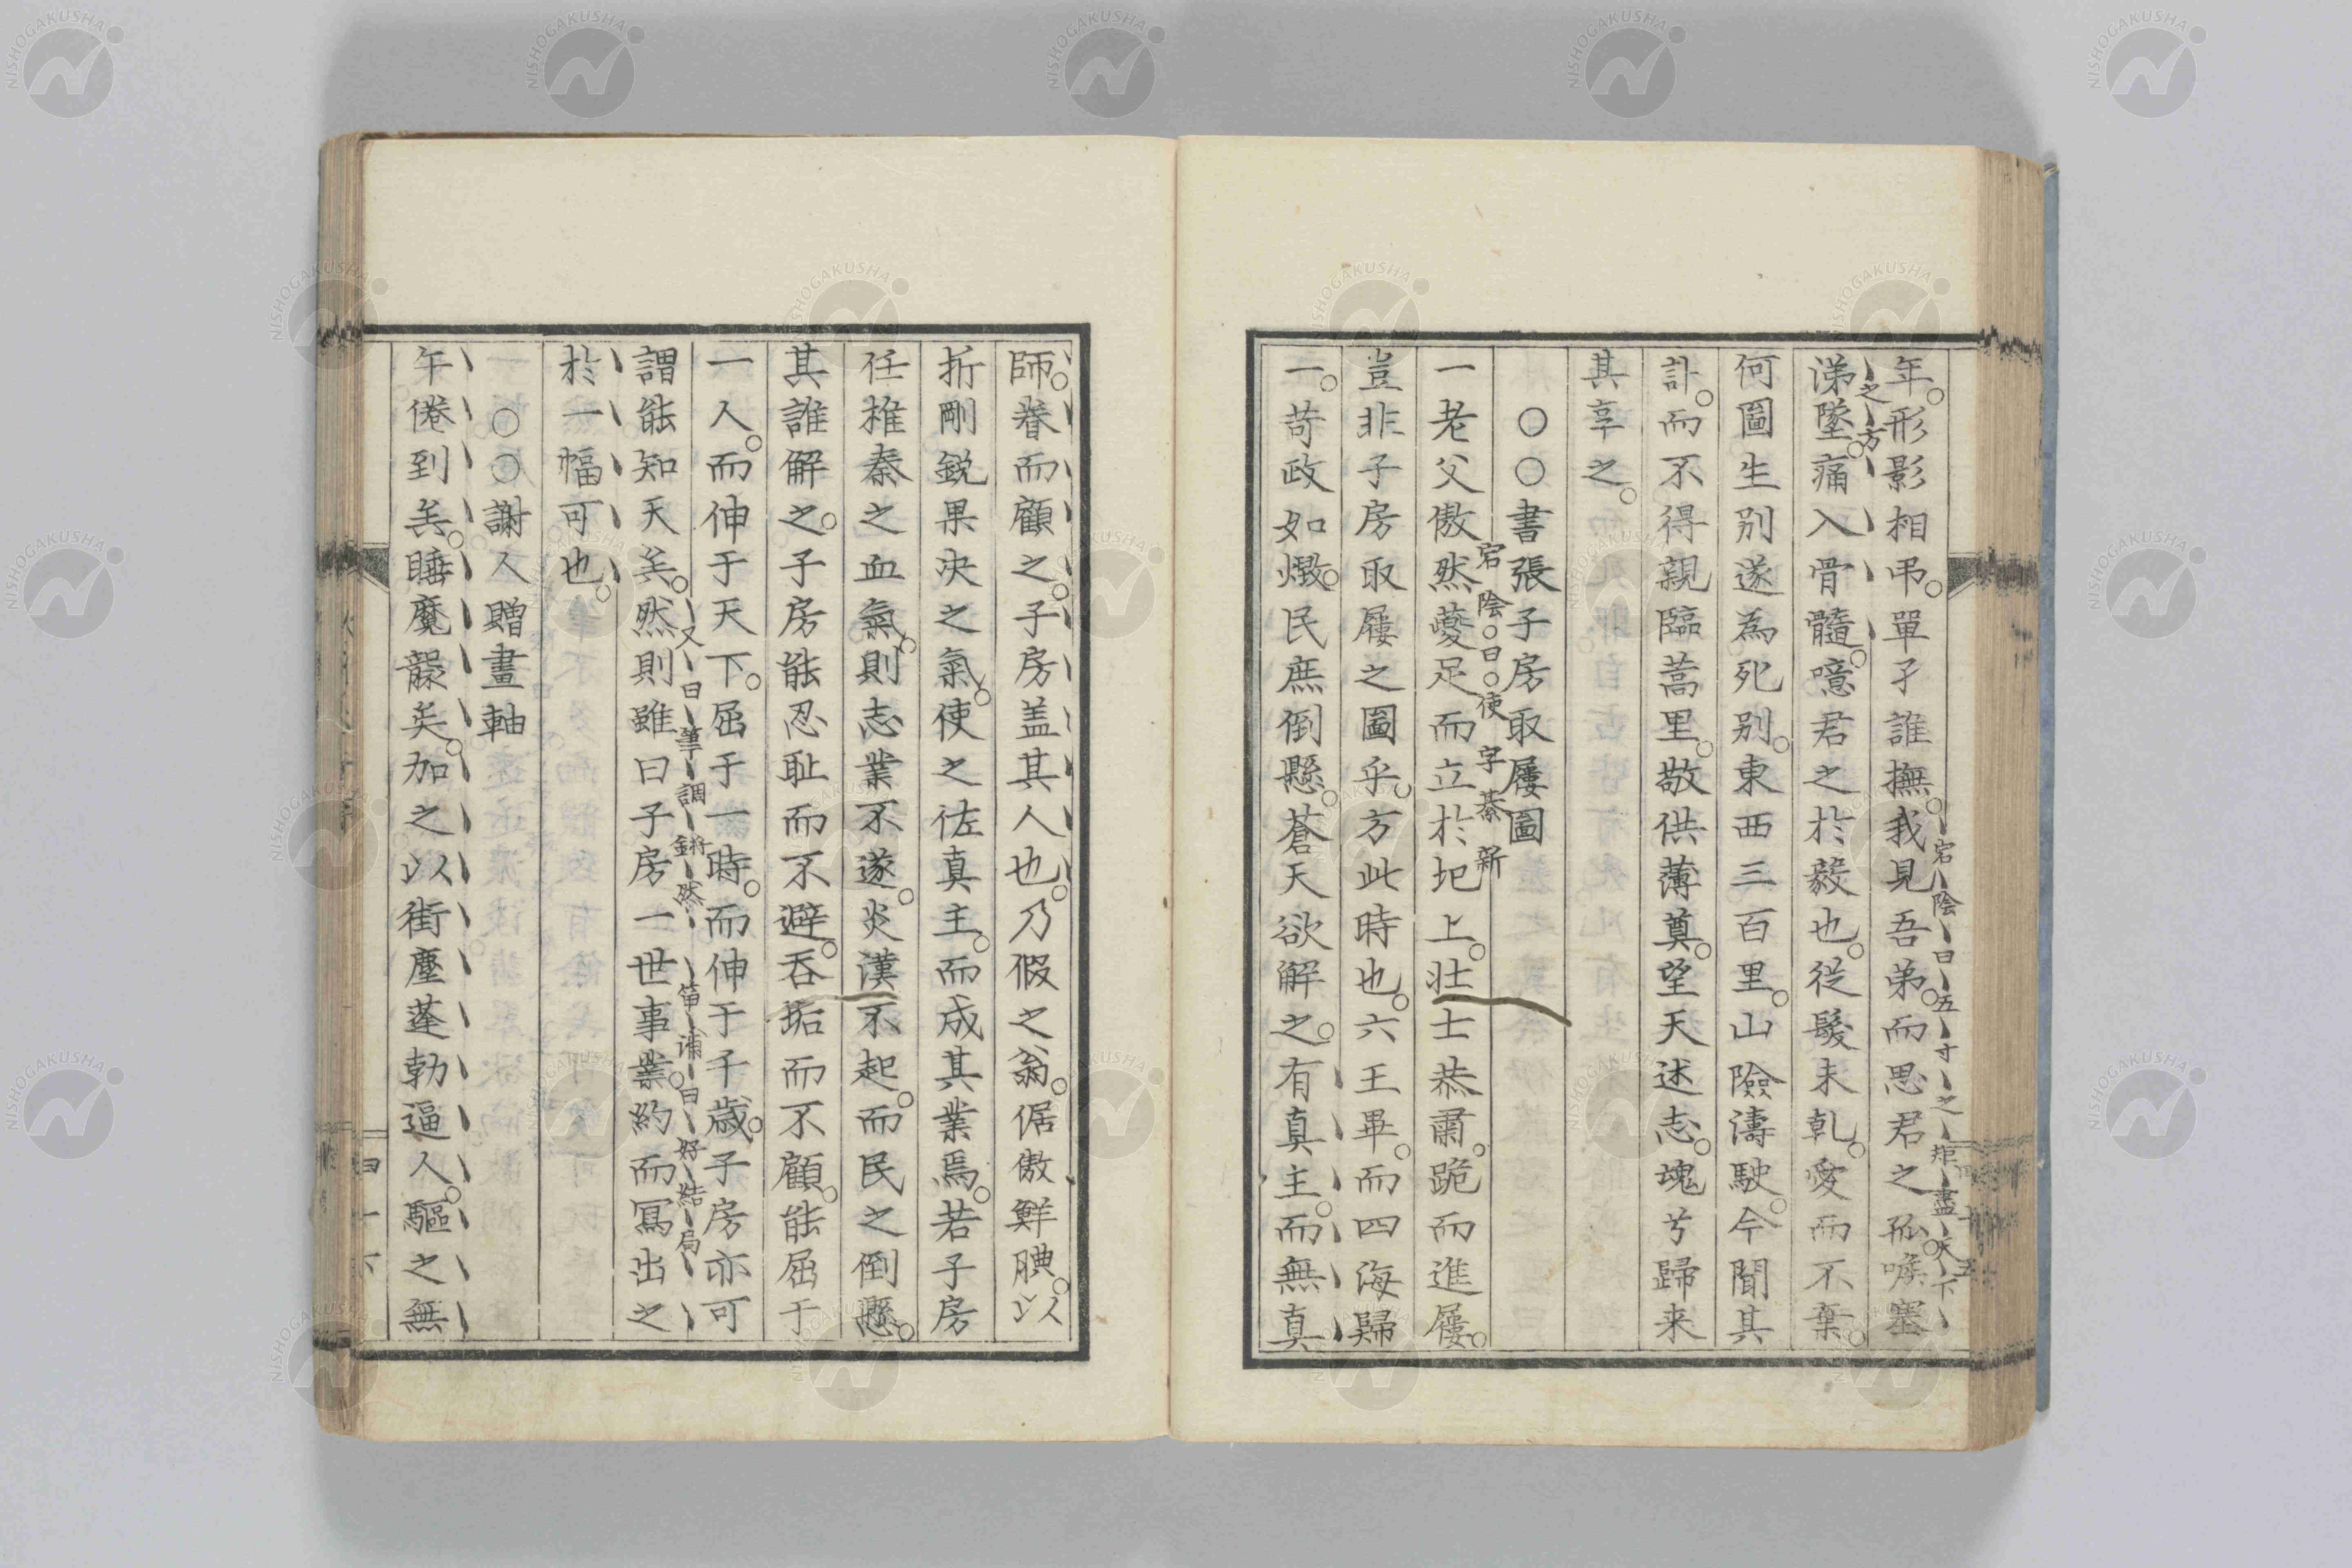 年。形影相弔。單孑誰撫。我見吾弟。而思君之孤。喉塞
宕陰曰五寸之矩盡天下
之方
涕墜。痛入骨髓。噫君之於毅也。従髪未乹。愛而不棄。
何圖生別遂為死別。東西三百里。山險濤駛。今聞其
訃。而不得親臨蒿里。敬供薄奠。望天述志。魂兮歸来
其享之。
○○書張子房取屨圖
宕陰曰使字綦新
一老父傲然蘷足而立於圯上。壮士恭肅。跪而進屨。
豈非子房取屨之圖乎。方此時也。六王畢。而四海歸
一。苛政如燬。民庶倒懸。蒼天欲解之。有真主。而無真
師。眷而顧之。子房盖其人也。乃假之翁。倨傲鮮腆。以
折剛鋭果決之氣。使之佐真主。而成其業焉。若子房
任椎秦之血氣。則志業不遂。炎漢不起。而民之倒懸。
其誰解之。子房能忍耻而不避。呑垢而不顧。能屈于
一人。而伸于天下。屈于一時。而伸于千歳。子房亦可
又曰筆調鏘然
笛浦曰好結局
謂能知天矣。然則雖曰子房一世事業。約而冩出之
於一幅可也。
○○謝人贈畫軸
午倦到矣。睡魔譟矣。加之以街塵蓬勃逼人。驅之無
四十下